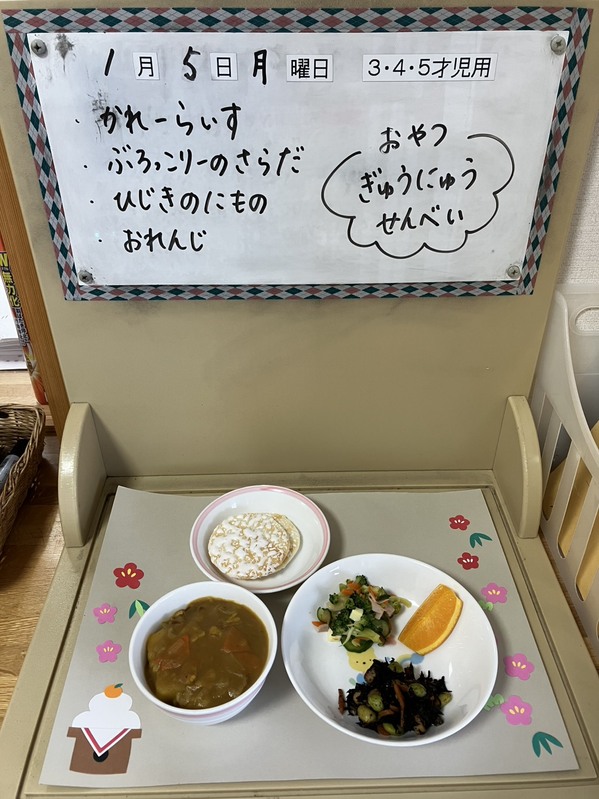 1月5日月曜日 3・4・5才児用
・かれーらいす
・ぶろっこりーのさらだ
・ひじきのにもの
・おれんじ
おやつ
ぎゅうにゅう
せんべい